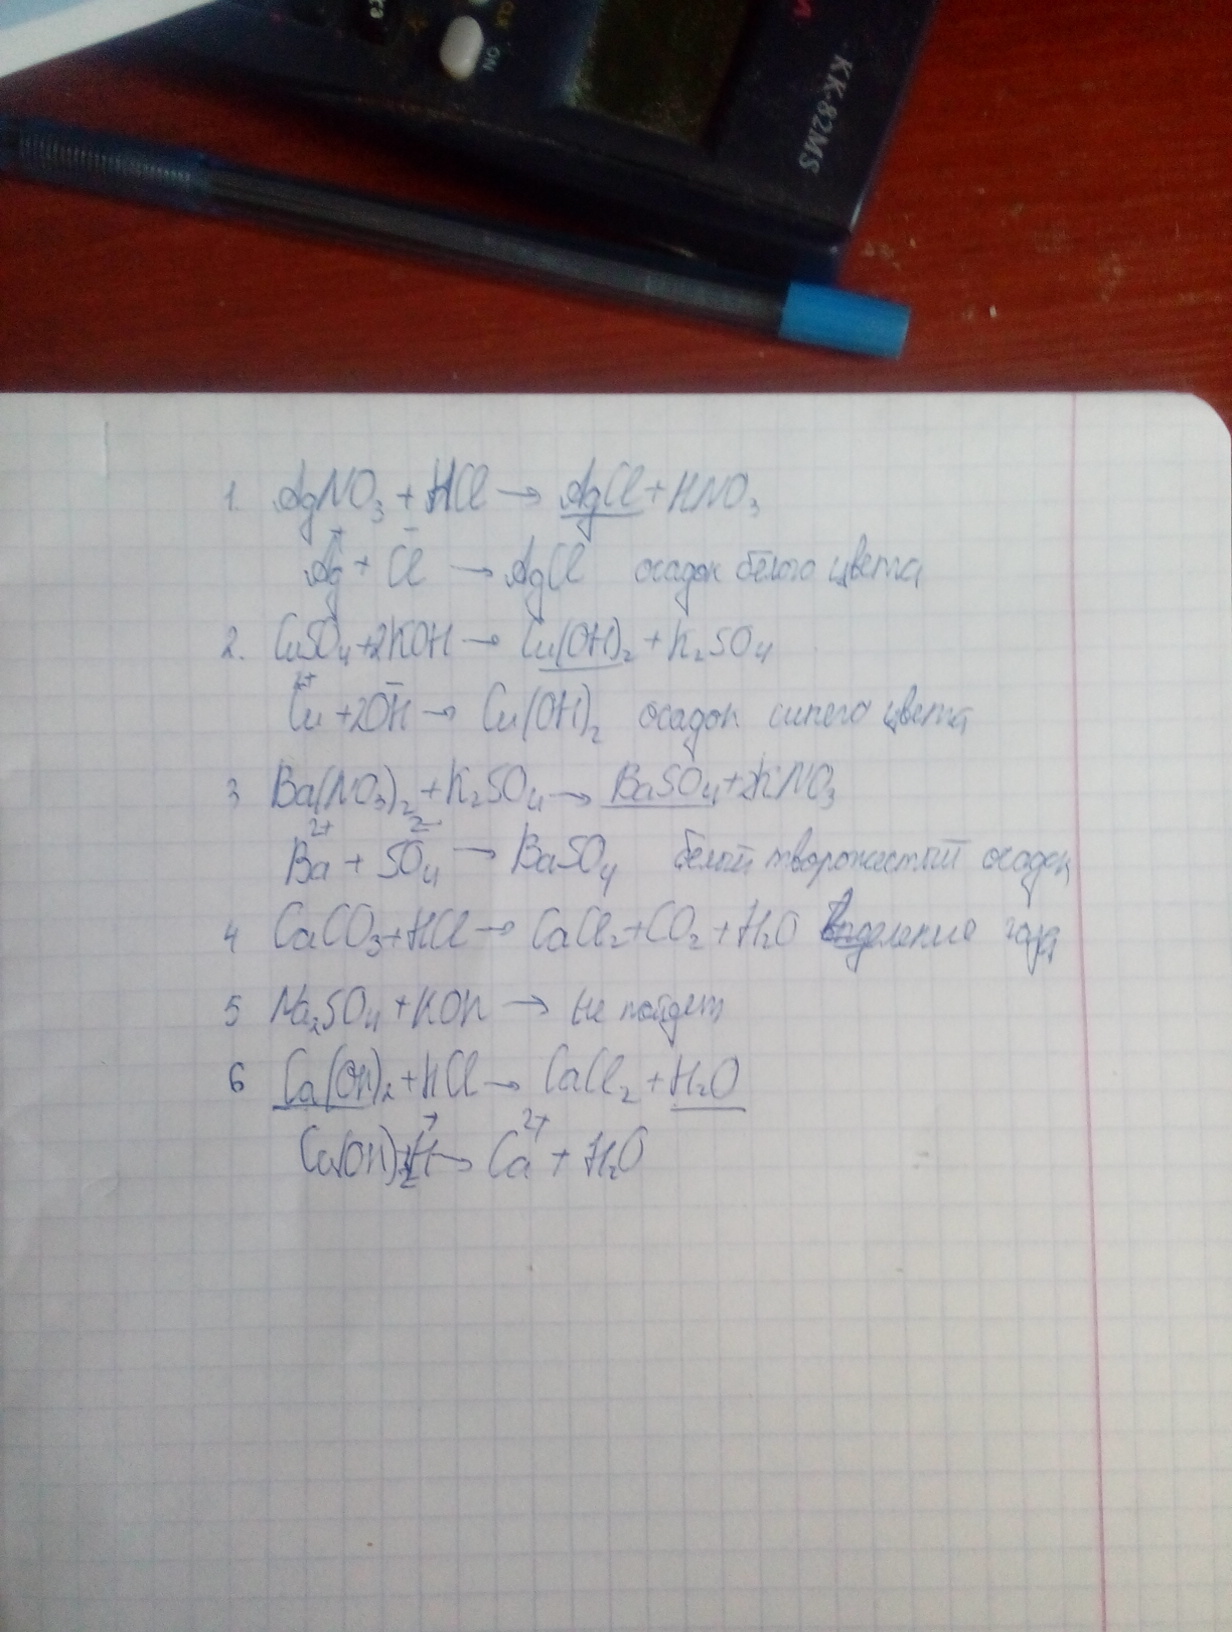 ON
KK-82MS
1. AgNO₃ + HCl → AgCl + HNO₃
Ag⁺ + Cl⁻ → AgCl осадок белого цвета
2. CuSO₄ + 2KOH → Cu(OH)₂ + K₂SO₄
Cu²⁺ + 2OH⁻ → Cu(OH)₂ осадок синего цвета
3 Ba(NO₃)₂ + K₂SO₄ → BaSO₄ + 2KNO₃
Ba²⁺ + SO₄²⁻ → BaSO₄ белый творожистый осадок
4 CaCO₃ + HCl → CaCl₂ + CO₂ + H₂O Выделение газа
5 Na₂SO₄ + KOH → не пойдет
6 Ca(OH)₂ + HCl → CaCl₂ + H₂O
Ca(OH)₂ + H⁺ → Ca²⁺ + H₂O